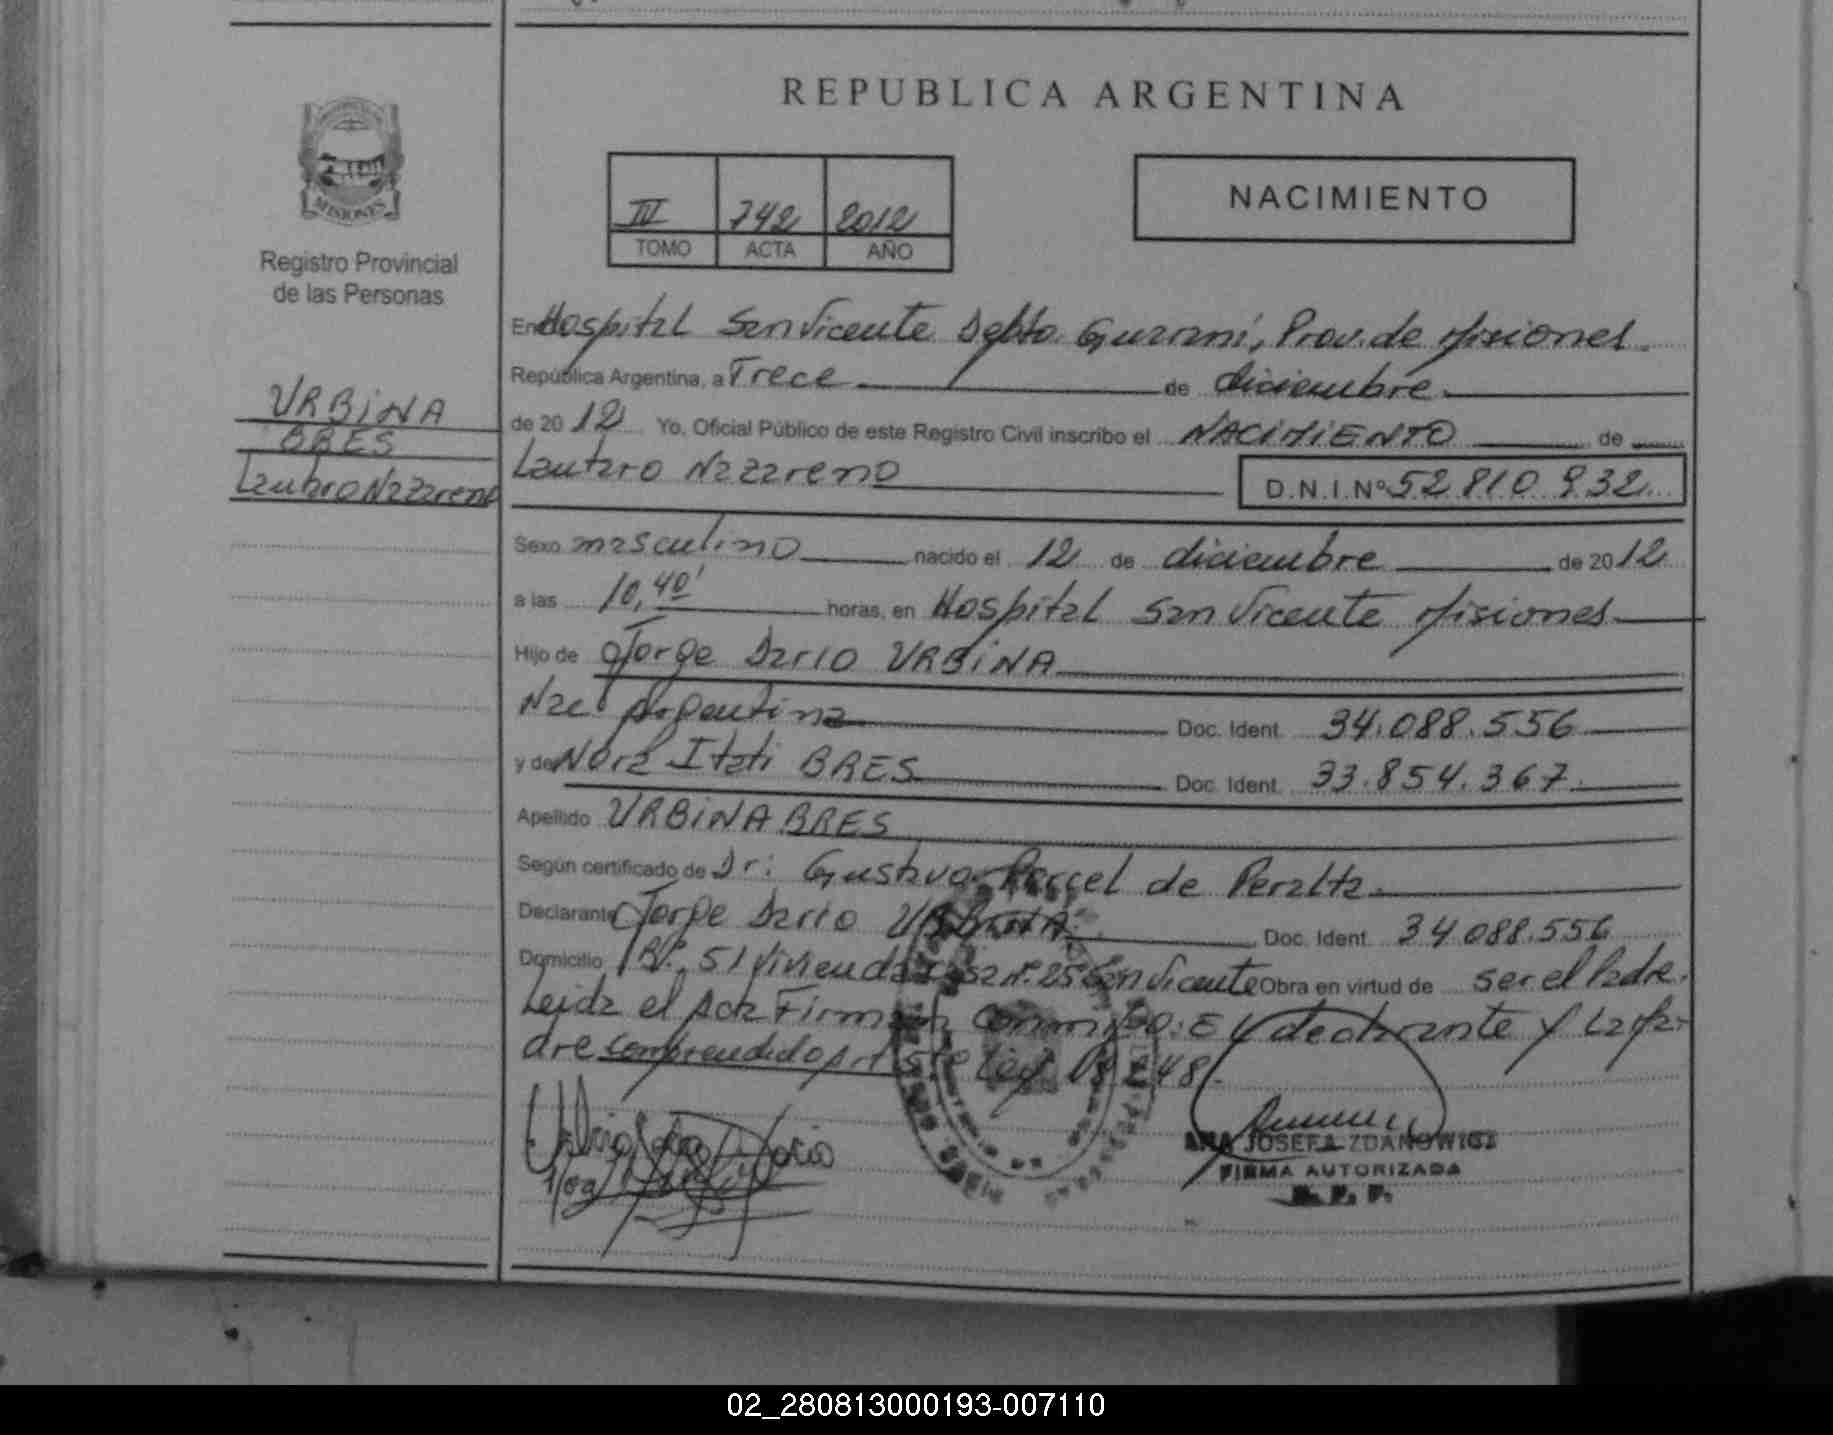 REPUBLICA ARGENTINA
MISIONES
Registro Provincial
de las Personas
III 742 2012
TOMO ACTA AÑO
NACIMIENTO
En Hospital San Vicente Depto. Guarani, Prov. de Misiones
República Argentina, a Trece de diciembre
de 2012 Yo, Oficial Público de este Registro Civil inscribo el NACIMIENTO de
Lautaro Nazareno D.N.I. Nº 52 810 932
URBINA
BRES
Lautaro Nazareno
Sexo masculino nacido el 12 de diciembre de 2012
a las 10,40' horas, en Hospital San Vicente Misiones
Hijo de Jorge Dario URBINA
Nac. Argentina Doc. Ident. 34.088.556
y de Nora Itati BRES Doc. Ident. 33.854.367
Apellido URBINA BRES
Según certificado de Dr: Gustavo de Peralta
Declarante Jorge Dario URBINA Doc. Ident. 34.088.556
Domicilio Bº. 51 Viviendas Casa nº. 25 San Vicente Obra en virtud de ser el Padre.
Leida el Acta Firman Conmigo: El declarante y La Ma-
dre comprendido Ley 18248.
ANA JOSEFA ZDANOWICZ
FIRMA AUTORIZADA
R. P. P.
02_280813000193-007110